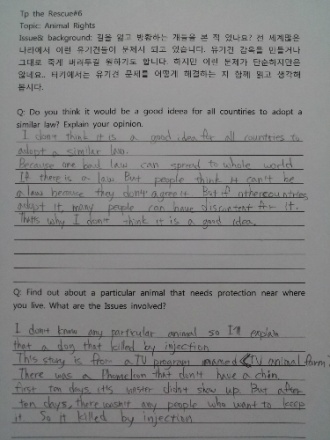 Tp the Rescue#6
Topic: Animal Rights
Issue& background: 길을 잃고 방황하는 개들을 본 적 있나요? 전 세계많은
나라에서 이런 유기견들이 문제시 되고 있습니다. 유기견 감옥을 만들거나
그대로 죽게 버려두길 원하기도 합니다. 하지만 이런 문제가 단순하지만은
않네요.. 터키에서는 유기견 문제를 어떻게 해결하는 지 함께 읽고 생각해
봅시다.
Q: Do you think it would be a good ideea for all countries to adopt a
similar law? Explain your opinion.
I don't think it is a good idea for all countries to
adopt a similar law.
Because one bad law can spread to whole world
If there is a law But people think it can't be
a law because they don't agree it. But if other countries
adopt it, many people can have discontent for it.
That's why I don't think it is a good idea.
Q: Find out about a particular animal that needs protection near where
you live. What are the Issues involved?
I don't know any particular animal so I'll explain
that a dog that killed by injection
This story is from a TV program named <TV animal farm>
There was a that don't have a chin.
first ten days, it's owner didn't show up. But after
ten days, there wasn't any people who want to keep
it. So it killed by injection